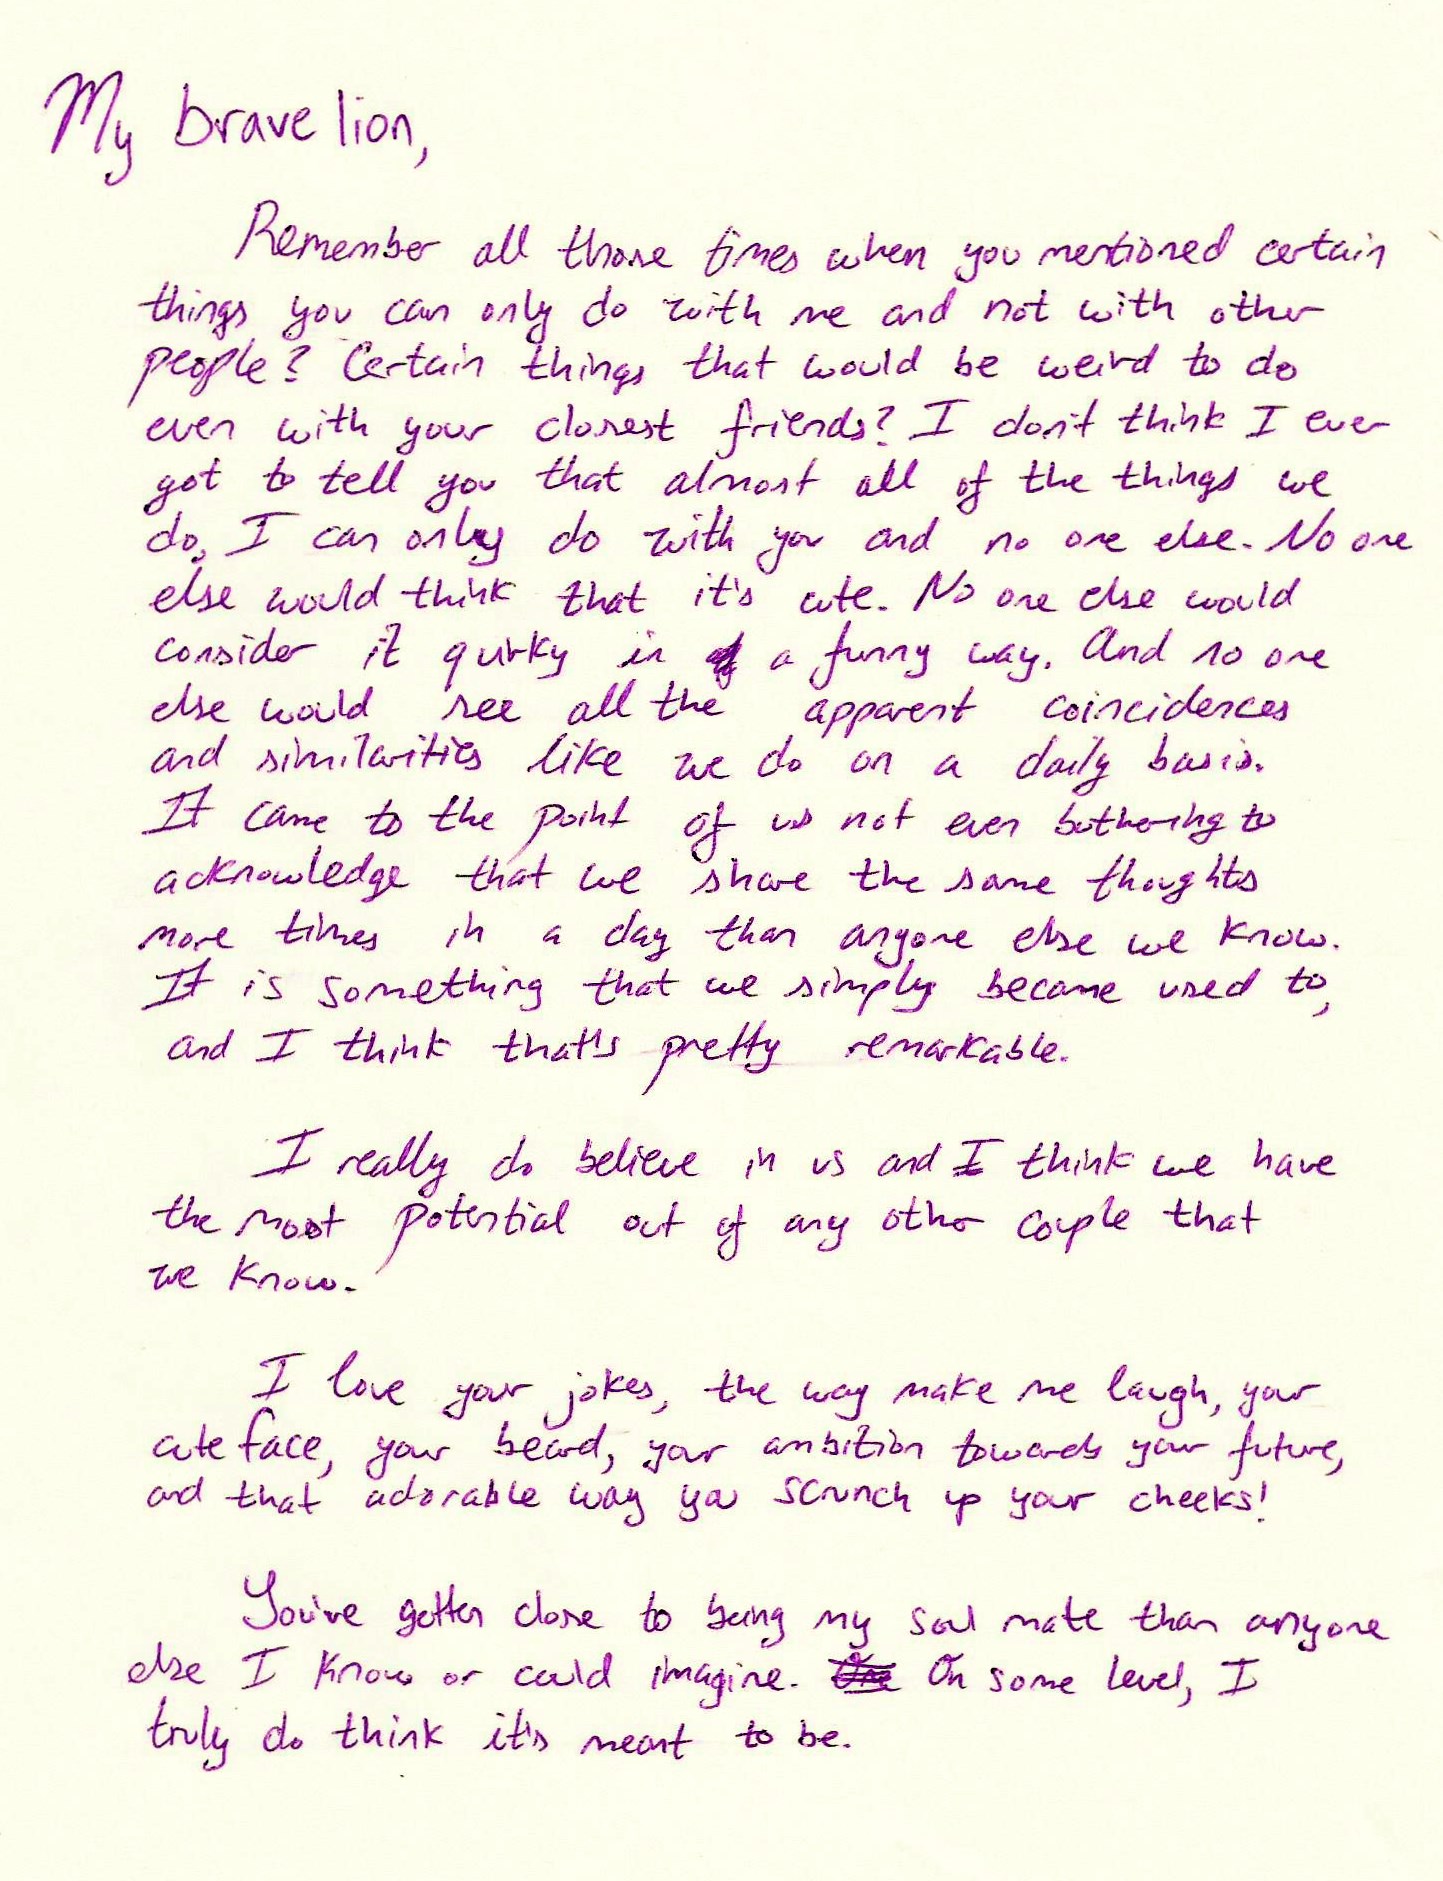 My brave lion,
Remember all those times when you mentioned certain
things you can only do with me and not with other
people? Certain things that would be weird to do
even with your closest friends? I don't think I ever
got to tell you that almost all of the things we
do, I can only do with you and no one else. No one
else would think that it's cute. No one else would
consider it quirky in a funny way. And no one
else would see all the apparent coincidences
and similarities like we do on a daily basis.
It came to the point of us not even bothering to
acknowledge that we share the same thoughts
more times in a day than anyone else we know.
It is something that we simply became used to,
and I think that's pretty remarkable.
I really do believe in us and I think we have
the most potential out of any other couple that
we know.
I love your jokes, the way make me laugh, your
cute face, your beard, your ambition towards your future,
and that adorable way you scrunch up your cheeks!
You've gotten close to being my soul mate than anyone
else I know or could imagine. On some level, I
truly do think it's meant to be.